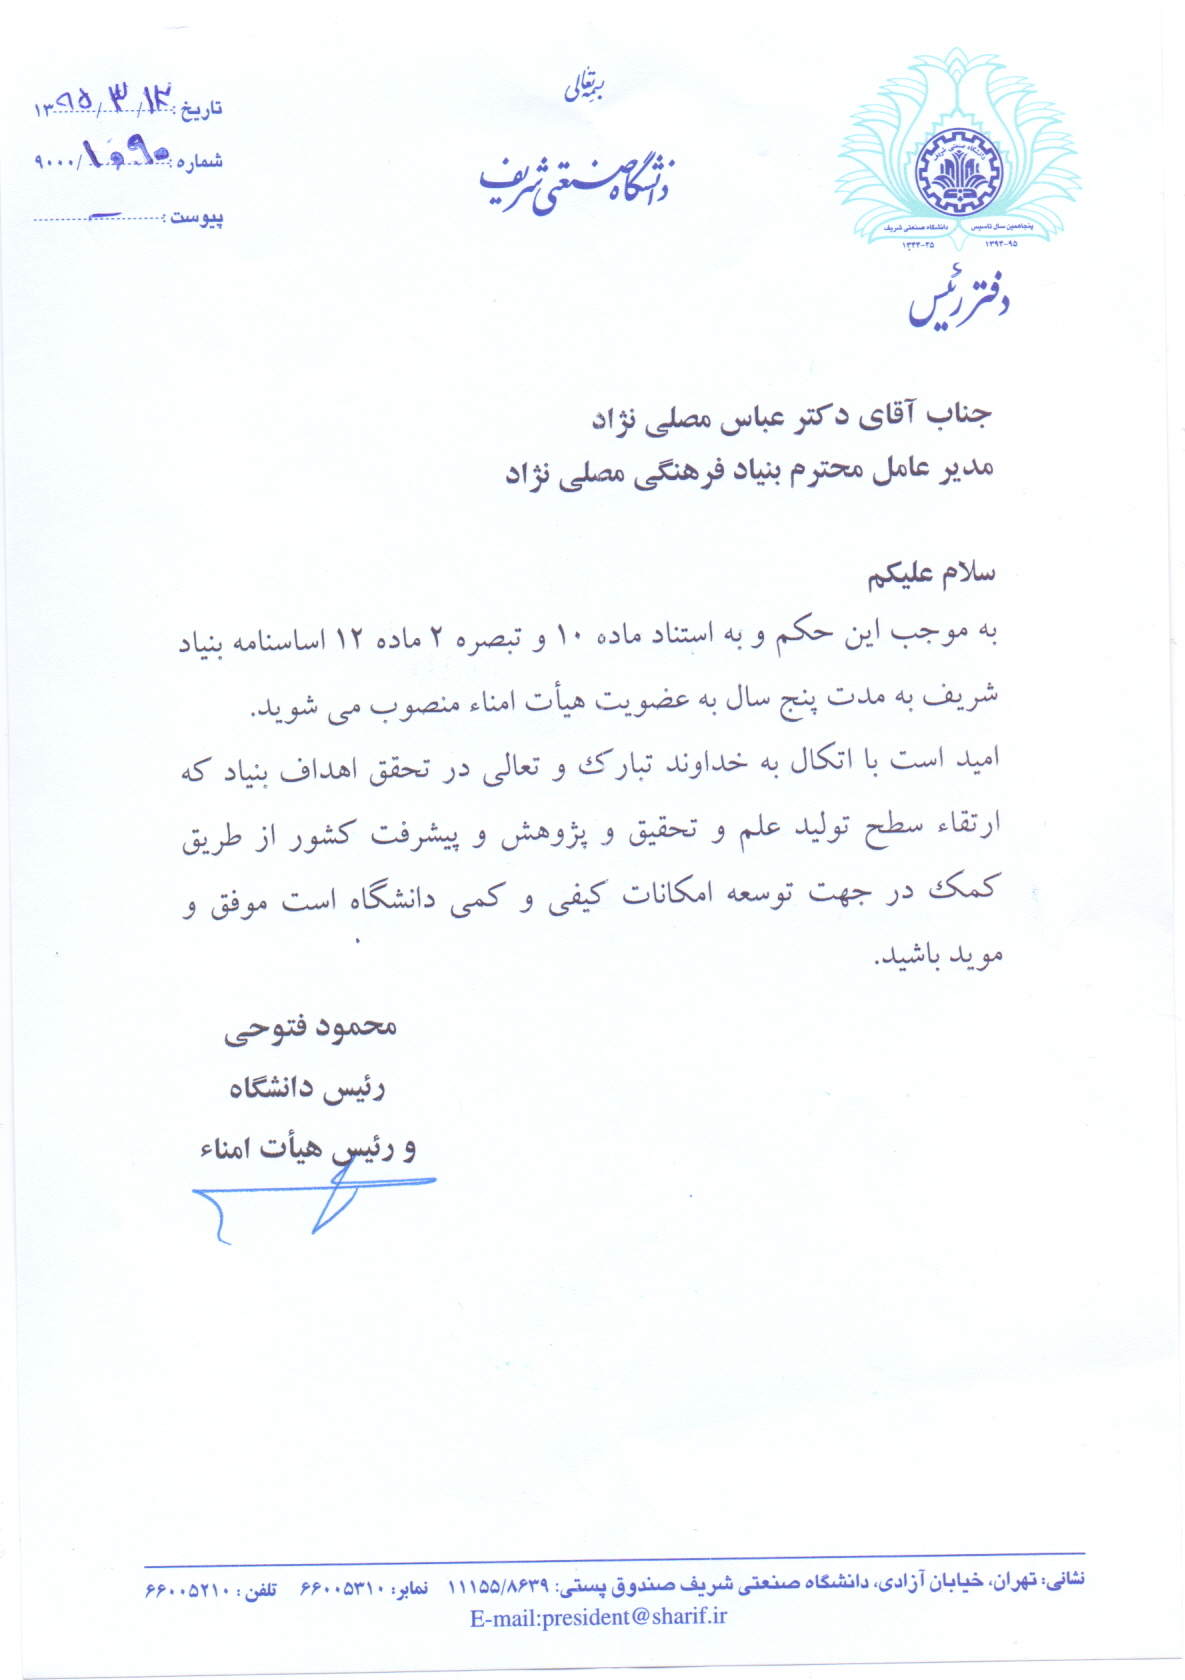 بسمه تعالی
دانشگاه صنعتی شریف
تاریخ: ۱۳۹۵/۳/۱۲
شماره: ۹۰۰۰/۱۰۹۰
پیوست: —
دانشگاه صنعتی شریف
پنجاهمین سال تاسیس دانشگاه صنعتی شریف
۱۳۹۴-۹۵ ۱۳۴۴-۴۵
دفتر رئیس
جناب آقای دکتر عباس مصلی نژاد
مدیر عامل محترم بنیاد فرهنگی مصلی نژاد
سلام علیکم
به موجب این حکم و به استناد ماده ۱۰ و تبصره ۲ ماده ۱۲ اساسنامه بنیاد
شریف به مدت پنج سال به عضویت هیأت امناء منصوب می شوید.
امید است با اتکال به خداوند تبارک و تعالی در تحقق اهداف بنیاد که
ارتقاء سطح تولید علم و تحقیق و پژوهش و پیشرفت کشور از طریق
کمک در جهت توسعه امکانات کیفی و کمی دانشگاه است موفق و
موید باشید.
محمود فتوحی
رئیس دانشگاه
و رئیس هیأت امناء
نشانی: تهران، خیابان آزادی، دانشگاه صنعتی شریف صندوق پستی: ۱۱۱۵۵/۸۶۳۹ نمابر: ۶۶۰۰۵۳۱۰ تلفن: ۶۶۰۰۵۲۱۰
E-mail:president@sharif.ir